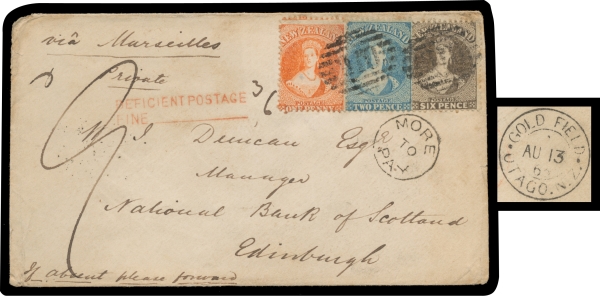 via Marseilles
Private
DEFICIENT POSTAGE
FINE
3/6
NEW ZEALAND
POSTAGE
NEW ZEALAND
POSTAGE
TWO PENCE
NEW ZEALAND
POSTAGE
SIX PENCE
MORE
TO
PAY
W. J. Duncan Esqre
Manager
National Bank of Scotland
Edinburgh
If absent please forward
GOLD FIELD
AU 13
63
OTAGO. N.Z.